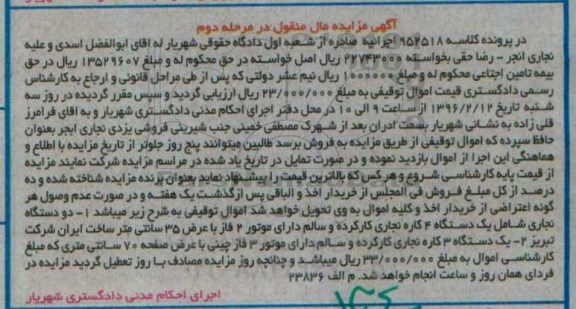 آگهی مزایده مال منقول در مرحله دوم
در پرونده کلاسه ۹۵۲۵۱۸ اجرائیه صادره از شعبه اول دادگاه حقوقی شهریار له اقای ابوالفضل اسدی و علیه
نجاری انجر - رضا حقی بخواسته ۲۲۷۴۳۰۰۰ ریال اصل خواسته در حق محکوم له و مبلغ ۱۳۵۲۹۶۰۷ ریال در حق
بیمه تامین اجتاعی محکوم له و مبلغ ۱۰۰۰۰۰۰ ریال نیم عشر دولتی که پس از طی مراحل قانونی و ارجاع به کارشناس
رسمی دادگستری قیمت اموال توقیفی به مبلغ ۲۳/۰۰۰/۰۰۰ ریال ارزیابی گردید و سپس مقرر گردیده در روز سه
شنبه تاریخ ۱۳۹۶/۲/۱۲ از ساعت ۹ الی ۱۰ در محل دفتر اجرای احکام مدنی دادگستری شهریار و به اقای فرامرز
قلی زاده به نشانی شهریار بسمت ادران بعد از شهرک مصطفی خمینی جنب شیرینی فروشی یزدی نجاری ابجر بعنوان
حافظ سپرده که اموال توقیفی از طریق مزایده به فروش برسد طالبین میتوانند پنج روز جلوتر از تاریخ مزایده با اطلاع و
هماهنگی این اجرا از اموال بازدید نموده و در صورت تمایل در تاریخ یاد شده در مراسم مزایده شرکت نمایند مزایده
از قیمت پایه کارشناسی شروع و هرکس که بالاترین قیمت را پیشنهاد نماید بعنوان برنده مزایده شناخته شده و ده
درصد از کل مبلغ فروش فی المجلس از خریدار اخذ و الباقی پس ازگذشت یک هفته و در صورت عدم وصول هر
گونه اعتراضی از خریدار اخذ و کلیه اموال به وی تحویل خواهد شد اموال توقیفی به شرح زیر میباشد ۱- دو دستگاه
نجاری شامل یک دستگاه ۴ کاره نجاری کارکرده و سالم دارای موتور ۲ فاز با عرض ۳۵ سانتی متر ساخت ایران شرکت
تبریز ۲- یک دستگاه ۳ کاره نجاری کارکرده و سالم دارای موتور ۳ فاز چینی با عرض صفحه ۷۰ سانتی متری که مبلغ
کارشناسی اموال به مبلغ ۳۳/۰۰۰/۰۰۰ ریال میباشد و چنانچه روز مزایده مصادف با روز تعطیل گردید مزایده در
فردای همان روز و ساعت انجام خواهد شد. م الف ۲۳۸۳۶
اجرای احکام مدنی دادگستری شهریار